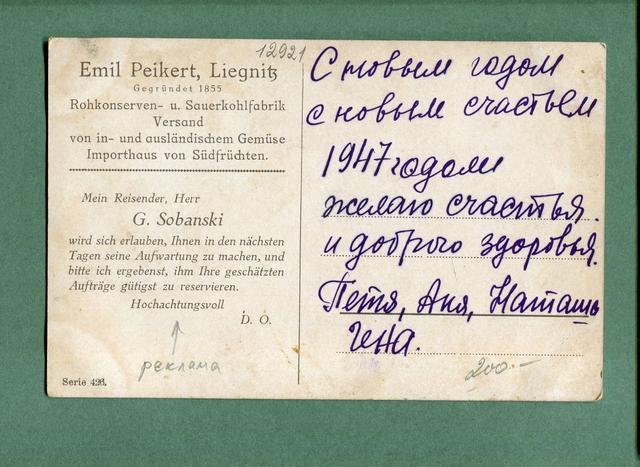 12921
Emil Peikert, Liegnitz
Gegründet 1855
Rohkonserven- u. Sauerkohlfabrik
Versand
von in- und ausländischem Gemüse
Importhaus von Südfrüchten.
Mein Reisender, Herr
G. Sobanski
wird sich erlauben, Ihnen in den nächsten
Tagen seine Aufwartung zu machen, und
bitte ich ergebenst, ihm Ihre geschätzten
Aufträge gütigst zu reservieren.
Hochachtungsvoll
D. O.
реклама
Serie
С новым годом
с новым счастьем
1947 годом
желаю счастья.
и доброго здоровья.
Петя, Аня, Наташа
Гена.
200.-